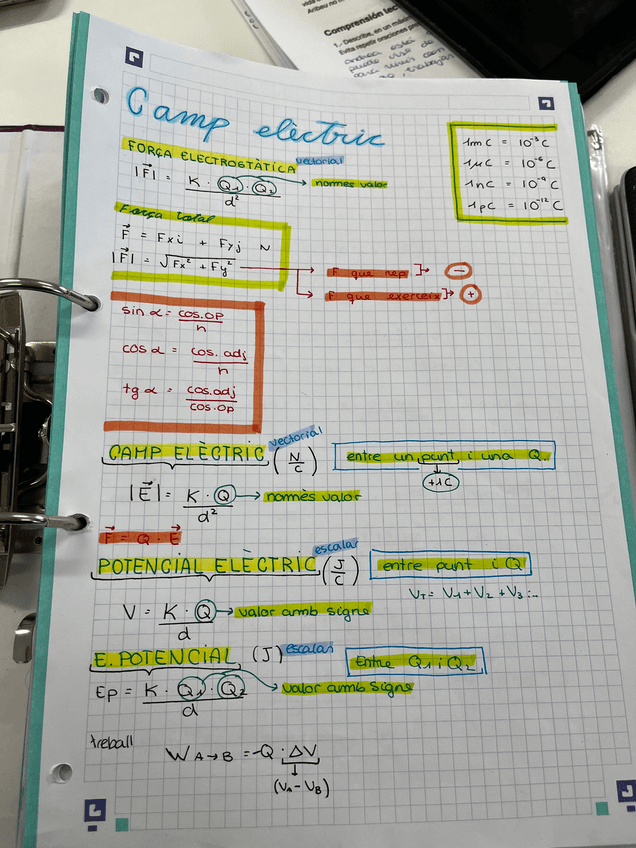 Comprensión lec
1.- Describe, en un máx
Evita repetir oraciones
Camp elèctric
1mC = 10⁻³C
1μC = 10⁻⁶C
1nC = 10⁻⁹C
1pC = 10⁻¹²C
FORÇA ELECTROSTÀTICA vectorial
|F⃗| = K · Q1 · Q2 / d² → només valor
Força total
F⃗ = Fxi + Fyj N
|F⃗| = √Fx² + Fy²
F que rep ]→ −
F que exerceix ]→ +
sin α = cos.op / h
cos α = cos.adj / h
tg α = cos.adj / cos.op
CAMP ELÈCTRIC (N/C) vectorial
entre un punt i una Q.
+1C
|E⃗| = K · Q / d² → només valor
F⃗ = Q · E⃗
POTENCIAL ELÈCTRIC (J/C) escalar
entre punt i Q
VT = V1 + V2 + V3 ...
V = K · Q / d → valor amb signe
E. POTENCIAL (J) escalar
Entre Q1 i Q2
Ep = K · Q1 · Q2 / d → valor amb signe
treball
W A→B = -Q · ΔV
(VA - VB)